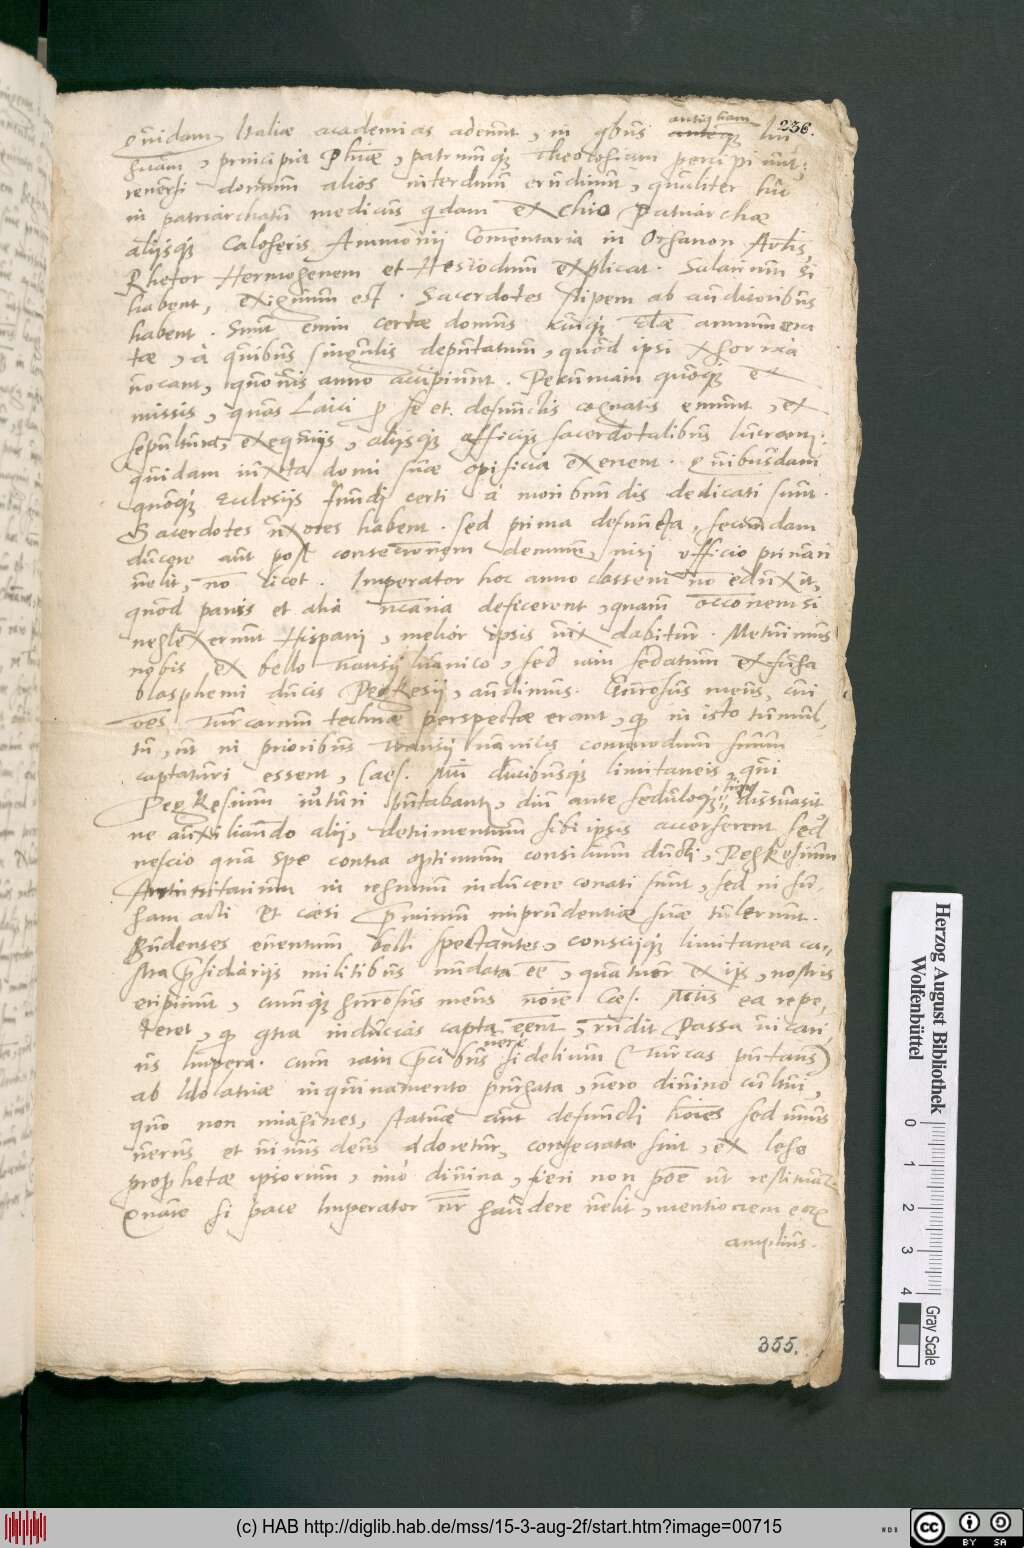 236.
Quidam, Italiae academias adeunt, in qbus antiquam lin
guam, principia Phiae, patrumq́; Theologiam percipiunt;
reuersi domum alios interdum erudiunt, qualiter hic
in patriarchatu medicus qdam ex Chio Patriarchae
alijsq́; Caloieris Ammonij Commentaria in Organon Artlis,
Rhetor Hermogenem et Hesiodum explicat. Salarium si
habent, exiguum est. Sacerdotes stipem ab auditoribus
habent. Sunt enim certae domus cuiq́; Eccliae annumera
tae, à quibus singulis deputatum, quod ipsi
uocant, quouis anno accipiunt. Pecuniam quoq́; è
missis, quas Laici p se et defunctis cognatis emunt, ex
sepultura, exequijs, alijsq́; officijs sacerdotalibus lucrant:
quidam iuxta domi suae opificia exercent. Quibusdam
quoq́; Ecclesijs fundj certi à moribundis dedicati sunt.
Sacerdotes uxores habent. sed prima defuncta, secundam
ducere aut post consecronem demum, nisi officio priuari
uelit, no licet. Imperator hoc anno classem no eduxit,
quod panis et alia necaria deficerent, quam occonem si
neglexerunt Hispani, melior ipsis uix dabitur. Metuimus
nobis ex bello Transyluanico, sed iam sedatum ex fuga
blasphemi ducis Pekesij, audimus. Generosus meus, cui
oes Turcarum technae perspectae erant, qp in isto tumul,
tu, ut in prioribus Transyluanicis commodum suum
captaturi essent, Caes. Mti ducibusq́; limitaneis, qui
Pekesium iuturi putabant, diu ante seduloq́; dissuasit
ne auxiliando alij, detrimentum sibi ipsis accerserent sed
nescio qua spe contra optimum consilium ducti, Pekesium
Antitrinitarium in regnum inducere conati sunt, sed in fu,
gam acti et caesi praemium imprudentiae suae tulerunt.
Budenses euentum belli spectantes, conscijq́; limitanea ca,
stra praesidiarijs militibus nudata ee, quatuor ex ijs, nostris
eripiunt, cumq́; generosus meus noie Caes. Mtis ea repe,
teret, qp contra inducias capta eent, rndit Passa uicari,
us Impera. cum iam praecibus uere fidelium (Turcas putans)
ab Idolatriae inquinamento purgata, uero diuino cultui,
quo non imagines, statuae aut defuncti hoies sed unus
uerus et uiuus deus adoretur, consecrata sint, ex lege
prophetae ipsorum, imò diuina, fieri non poe ut restituant
Quare si pace Imperator nr gaudere uelit, mentionem eorum
amplius.
355.
Herzog August Bibliothek
Wolfenbüttel
0 1 2 3 4
Gray Scale
(c) HAB http://diglib.hab.de/mss/15-3-aug-2f/start.htm?image=00715
WDB
cc BY SA